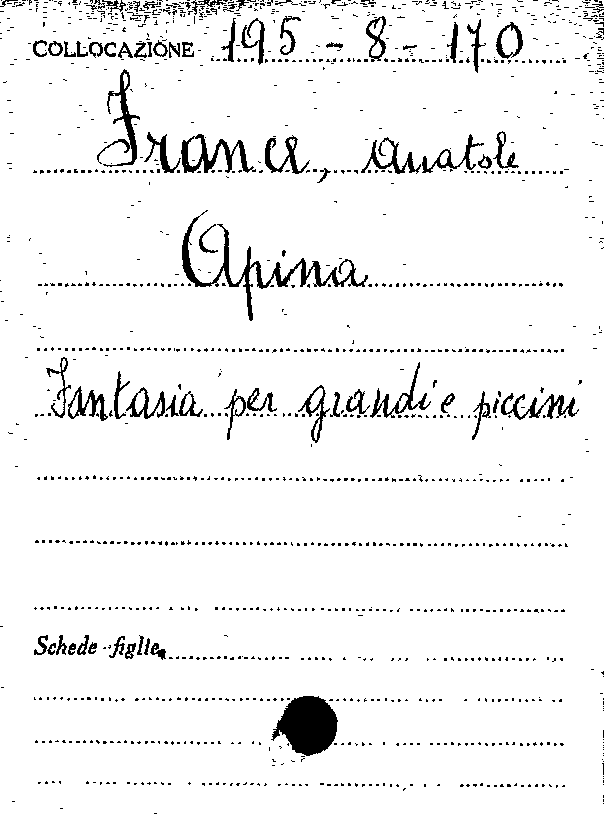 COLLOCAZIONE 195 - 8 - 170
France, Anatole
Apina
Fantasia per grandi e piccini
Schede figlie